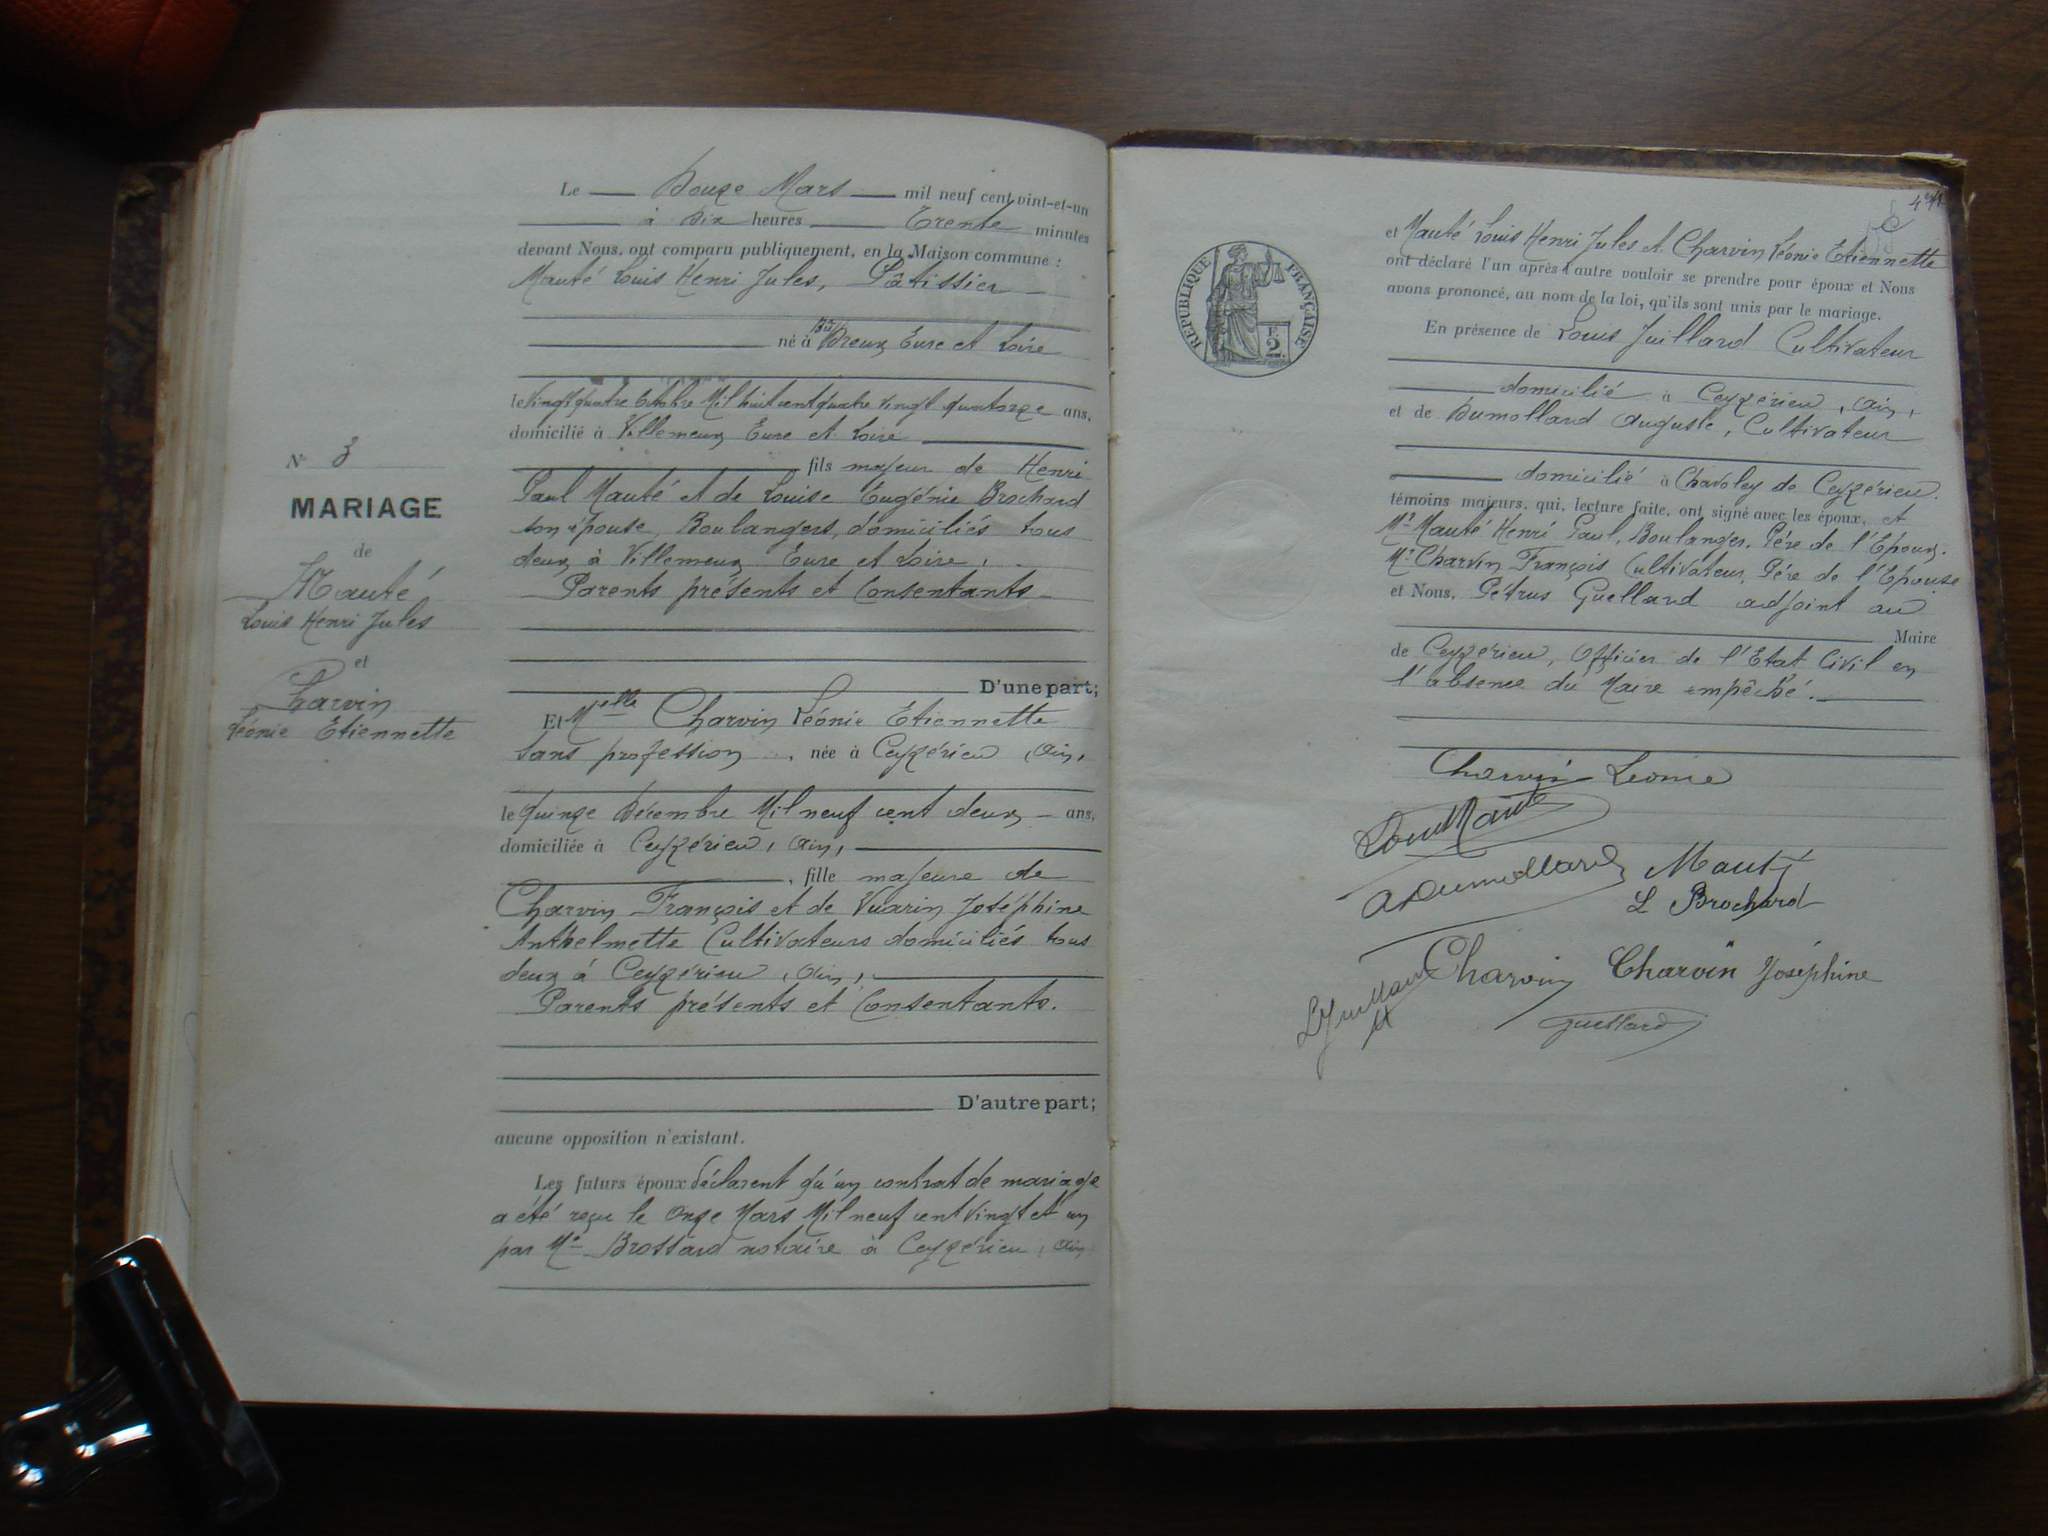 Le Douze Mars mil neuf cent vint-et-un
à Dix heures Trente minutes
devant Nous, ont comparu publiquement, en la Maison commune :
Mauté Louis Henri Jules, Pâtissier
né à Dreux Eure et Loire
le vingt quatre Octobre Mil huit cent quatre vingt quatorze ans,
domicilié à Villemeux Eure et Loire
fils majeur de Henri
Paul Mauté et de Louise Eugénie Brochard
son épouse, Boulangers, domiciliés tous
deux à Villemeux Eure et Loire,
Parents présents et Consentants
D'une part;
N° 3
MARIAGE
de
Mauté
Louis Henri Jules
et
Charvin
Léonie Etiennette
Et Melle Charvin Léonie Etiennette
sans profession, née à Ceyzérieu, Ain,
le quinze Décembre Mil neuf cent deux ans,
domiciliée à Ceyzérieu, Ain,
, fille majeure de
Charvin François et de Vuarin Joséphine
Anthelmette Cultivateurs domiciliés tous
deux à Ceyzérieu, Ain,
Parents présents et Consentants.
D'autre part;
aucune opposition n'existant.
Les futurs époux déclarent qu'un contrat de mariage
a été reçu le Onze Mars Mil neuf cent vingt et un
par Me Brossard notaire à Ceyzérieu, Ain
RÉPUBLIQUE FRANÇAISE
2
et Mauté Louis Henri Jules et Charvin Léonie Etiennette
ont déclaré l'un après l'autre vouloir se prendre pour époux et Nous
avons prononcé, au nom de la loi, qu'ils sont unis par le mariage.
En présence de Louis Juillard Cultivateur
domicilié à Ceyzérieu, Ain,
et de Dumollard Auguste, Cultivateur
domicilié à Chavoley de Ceyzérieu.
témoins majeurs, qui, lecture faite, ont signé avec les époux, et
Mr Mauté Henri Paul, Boulanger, Père de l'Epoux.
Mr Charvin François Cultivateur, Père de l'Epouse
et Nous, Pétrus Guellard adjoint au
Maire
de Ceyzérieu, Officier de l'Etat Civil en
l'absence du Maire empêché.
Charvin Léonie
Louis Mauté
A Dumollard Mauté
L Brochard
L Juillard Charvin Charvin Joséphine
Guellard